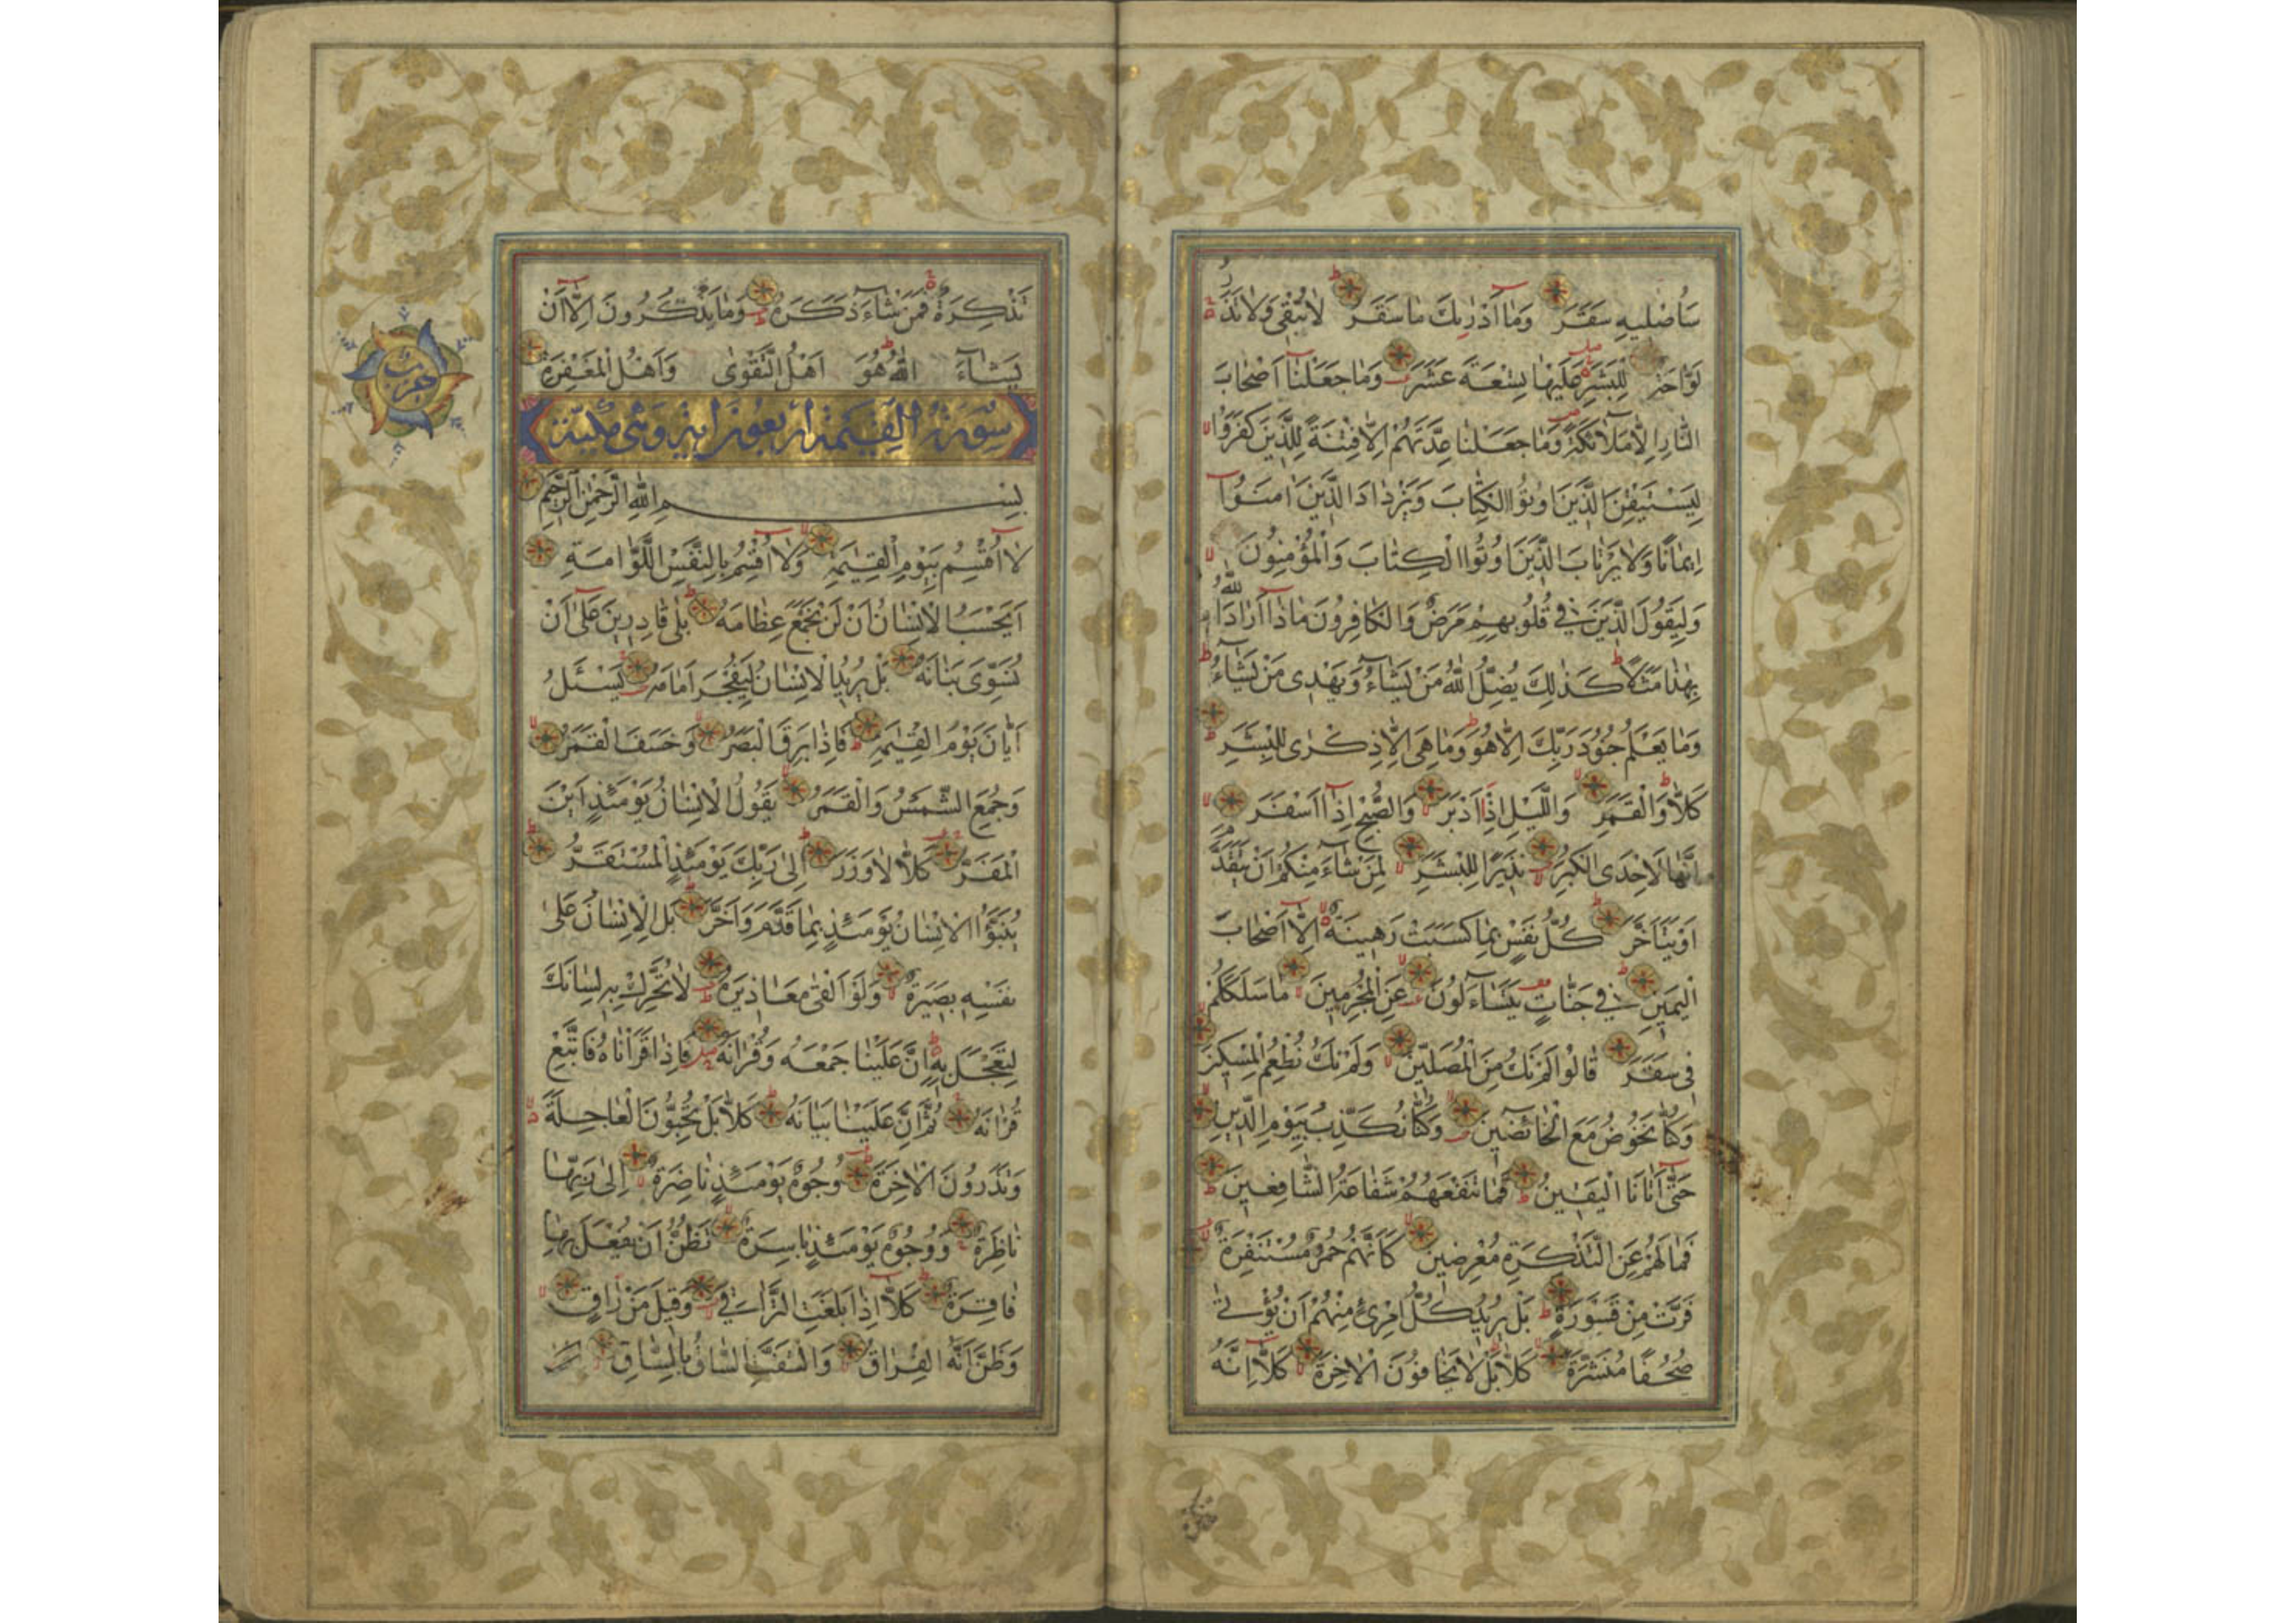 سَاُصْلِيهِ سَقَرَ وَمَا اَدْرٰيكَ مَا سَقَرُ لَا تُبْقِى وَلَا تَذَرُ
لَوَّاحَةٌ لِلْبَشَرِ عَلَيْهَا تِسْعَةَ عَشَرَ وَمَا جَعَلْنَا اَصْحَابَ
النَّارِ اِلَّا مَلٰٓائِكَةً وَمَا جَعَلْنَا عِدَّتَهُمْ اِلَّا فِتْنَةً لِلَّذِينَ كَفَرُوا
لِيَسْتَيْقِنَ الَّذِينَ اُوتُوا الْكِتَابَ وَيَزْدَادَ الَّذِينَ اٰمَنُوٓا
اِيمَانًا وَلَا يَرْتَابَ الَّذِينَ اُوتُوا الْكِتَابَ وَالْمُؤْمِنُونَ
وَلِيَقُولَ الَّذِينَ فِي قُلُوبِهِمْ مَرَضٌ وَالْكَافِرُونَ مَاذَٓا اَرَادَ اللّٰهُ
بِهٰذَا مَثَلًا كَذٰلِكَ يُضِلُّ اللّٰهُ مَنْ يَشَٓاءُ وَيَهْدِى مَنْ يَشَٓاءُ
وَمَا يَعْلَمُ جُنُودَ رَبِّكَ اِلَّا هُوَ وَمَا هِىَ اِلَّا ذِكْرٰى لِلْبَشَرِ
كَلَّا وَالْقَمَرِ وَالَّيْلِ اِذْ اَدْبَرَ وَالصُّبْحِ اِذَٓا اَسْفَرَ
اِنَّهَا لَاِحْدَى الْكُبَرِ نَذِيرًا لِلْبَشَرِ لِمَنْ شَٓاءَ مِنْكُمْ اَنْ يَتَقَدَّمَ
اَوْ يَتَاَخَّرَ كُلُّ نَفْسٍ بِمَا كَسَبَتْ رَهِينَةٌ اِلَّٓا اَصْحَابَ
الْيَمِينِ فِي جَنَّاتٍ يَتَسَٓاءَلُونَ عَنِ الْمُجْرِمِينَ مَا سَلَكَكُمْ
فِى سَقَرَ قَالُوا لَمْ نَكُ مِنَ الْمُصَلِّينَ وَلَمْ نَكُ نُطْعِمُ الْمِسْكِينَ
وَكُنَّا نَخُوضُ مَعَ الْخَٓائِضِينَ وَكُنَّا نُكَذِّبُ بِيَوْمِ الدِّينِ
حَتّٰٓى اَتَانَا الْيَقِينُ فَمَا تَنْفَعُهُمْ شَفَاعَةُ الشَّافِعِينَ
فَمَا لَهُمْ عَنِ التَّذْكِرَةِ مُعْرِضِينَ كَاَنَّهُمْ حُمُرٌ مُسْتَنْفِرَةٌ
فَرَّتْ مِنْ قَسْوَرَةٍ بَلْ يُرِيدُ كُلُّ امْرِئٍ مِنْهُمْ اَنْ يُؤْتٰى
صُحُفًا مُنَشَّرَةً كَلَّا بَلْ لَا يَخَافُونَ الْاٰخِرَةَ كَلَّٓا اِنَّهُ
تَذْكِرَةٌ فَمَنْ شَٓاءَ ذَكَرَهُ وَمَا يَذْكُرُونَ اِلَّٓا اَنْ
يَشَٓاءَ اللّٰهُ هُوَ اَهْلُ التَّقْوٰى وَاَهْلُ الْمَغْفِرَةِ
سورة القيمة اربعون اية وهى مكية
بِسْمِ اللّٰهِ الرَّحْمٰنِ الرَّحِيمِ
لَٓا اُقْسِمُ بِيَوْمِ الْقِيٰمَةِ وَلَٓا اُقْسِمُ بِالنَّفْسِ اللَّوَّامَةِ
اَيَحْسَبُ الْاِنْسَانُ اَنْ لَنْ نَجْمَعَ عِظَامَهُ بَلٰى قَادِرِينَ عَلٰٓى اَنْ
نُسَوِّىَ بَنَانَهُ بَلْ يُرِيدُ الْاِنْسَانُ لِيَفْجُرَ اَمَامَهُ يَسْئَلُ
اَيَّانَ يَوْمُ الْقِيٰمَةِ فَاِذَا بَرِقَ الْبَصَرُ وَخَسَفَ الْقَمَرُ
وَجُمِعَ الشَّمْسُ وَالْقَمَرُ يَقُولُ الْاِنْسَانُ يَوْمَئِذٍ اَيْنَ
الْمَفَرُّ كَلَّا لَا وَزَرَ اِلٰى رَبِّكَ يَوْمَئِذٍ الْمُسْتَقَرُّ
يُنَبَّؤُا الْاِنْسَانُ يَوْمَئِذٍ بِمَا قَدَّمَ وَاَخَّرَ بَلِ الْاِنْسَانُ عَلٰى
نَفْسِهِ بَصِيرَةٌ وَلَوْ اَلْقٰى مَعَاذِيرَهُ لَا تُحَرِّكْ بِهِ لِسَانَكَ
لِتَعْجَلَ بِهِ اِنَّ عَلَيْنَا جَمْعَهُ وَقُرْاٰنَهُ فَاِذَا قَرَاْنَاهُ فَاتَّبِعْ
قُرْاٰنَهُ ثُمَّ اِنَّ عَلَيْنَا بَيَانَهُ كَلَّا بَلْ تُحِبُّونَ الْعَاجِلَةَ
وَتَذَرُونَ الْاٰخِرَةَ وُجُوهٌ يَوْمَئِذٍ نَاضِرَةٌ اِلٰى رَبِّهَا
نَاظِرَةٌ وَوُجُوهٌ يَوْمَئِذٍ بَاسِرَةٌ تَظُنُّ اَنْ يُفْعَلَ بِهَا
فَاقِرَةٌ كَلَّٓا اِذَا بَلَغَتِ التَّرَاقِىَ وَقِيلَ مَنْ رَاقٍ
وَظَنَّ اَنَّهُ الْفِرَاقُ وَالْتَفَّتِ السَّاقُ بِالسَّاقِ